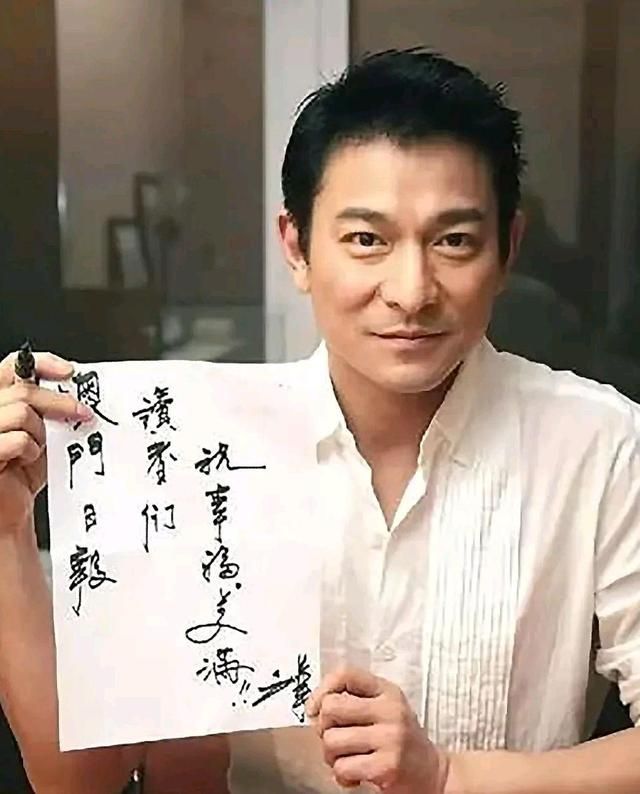 澳門日報
讀者們
祝幸福美滿!!